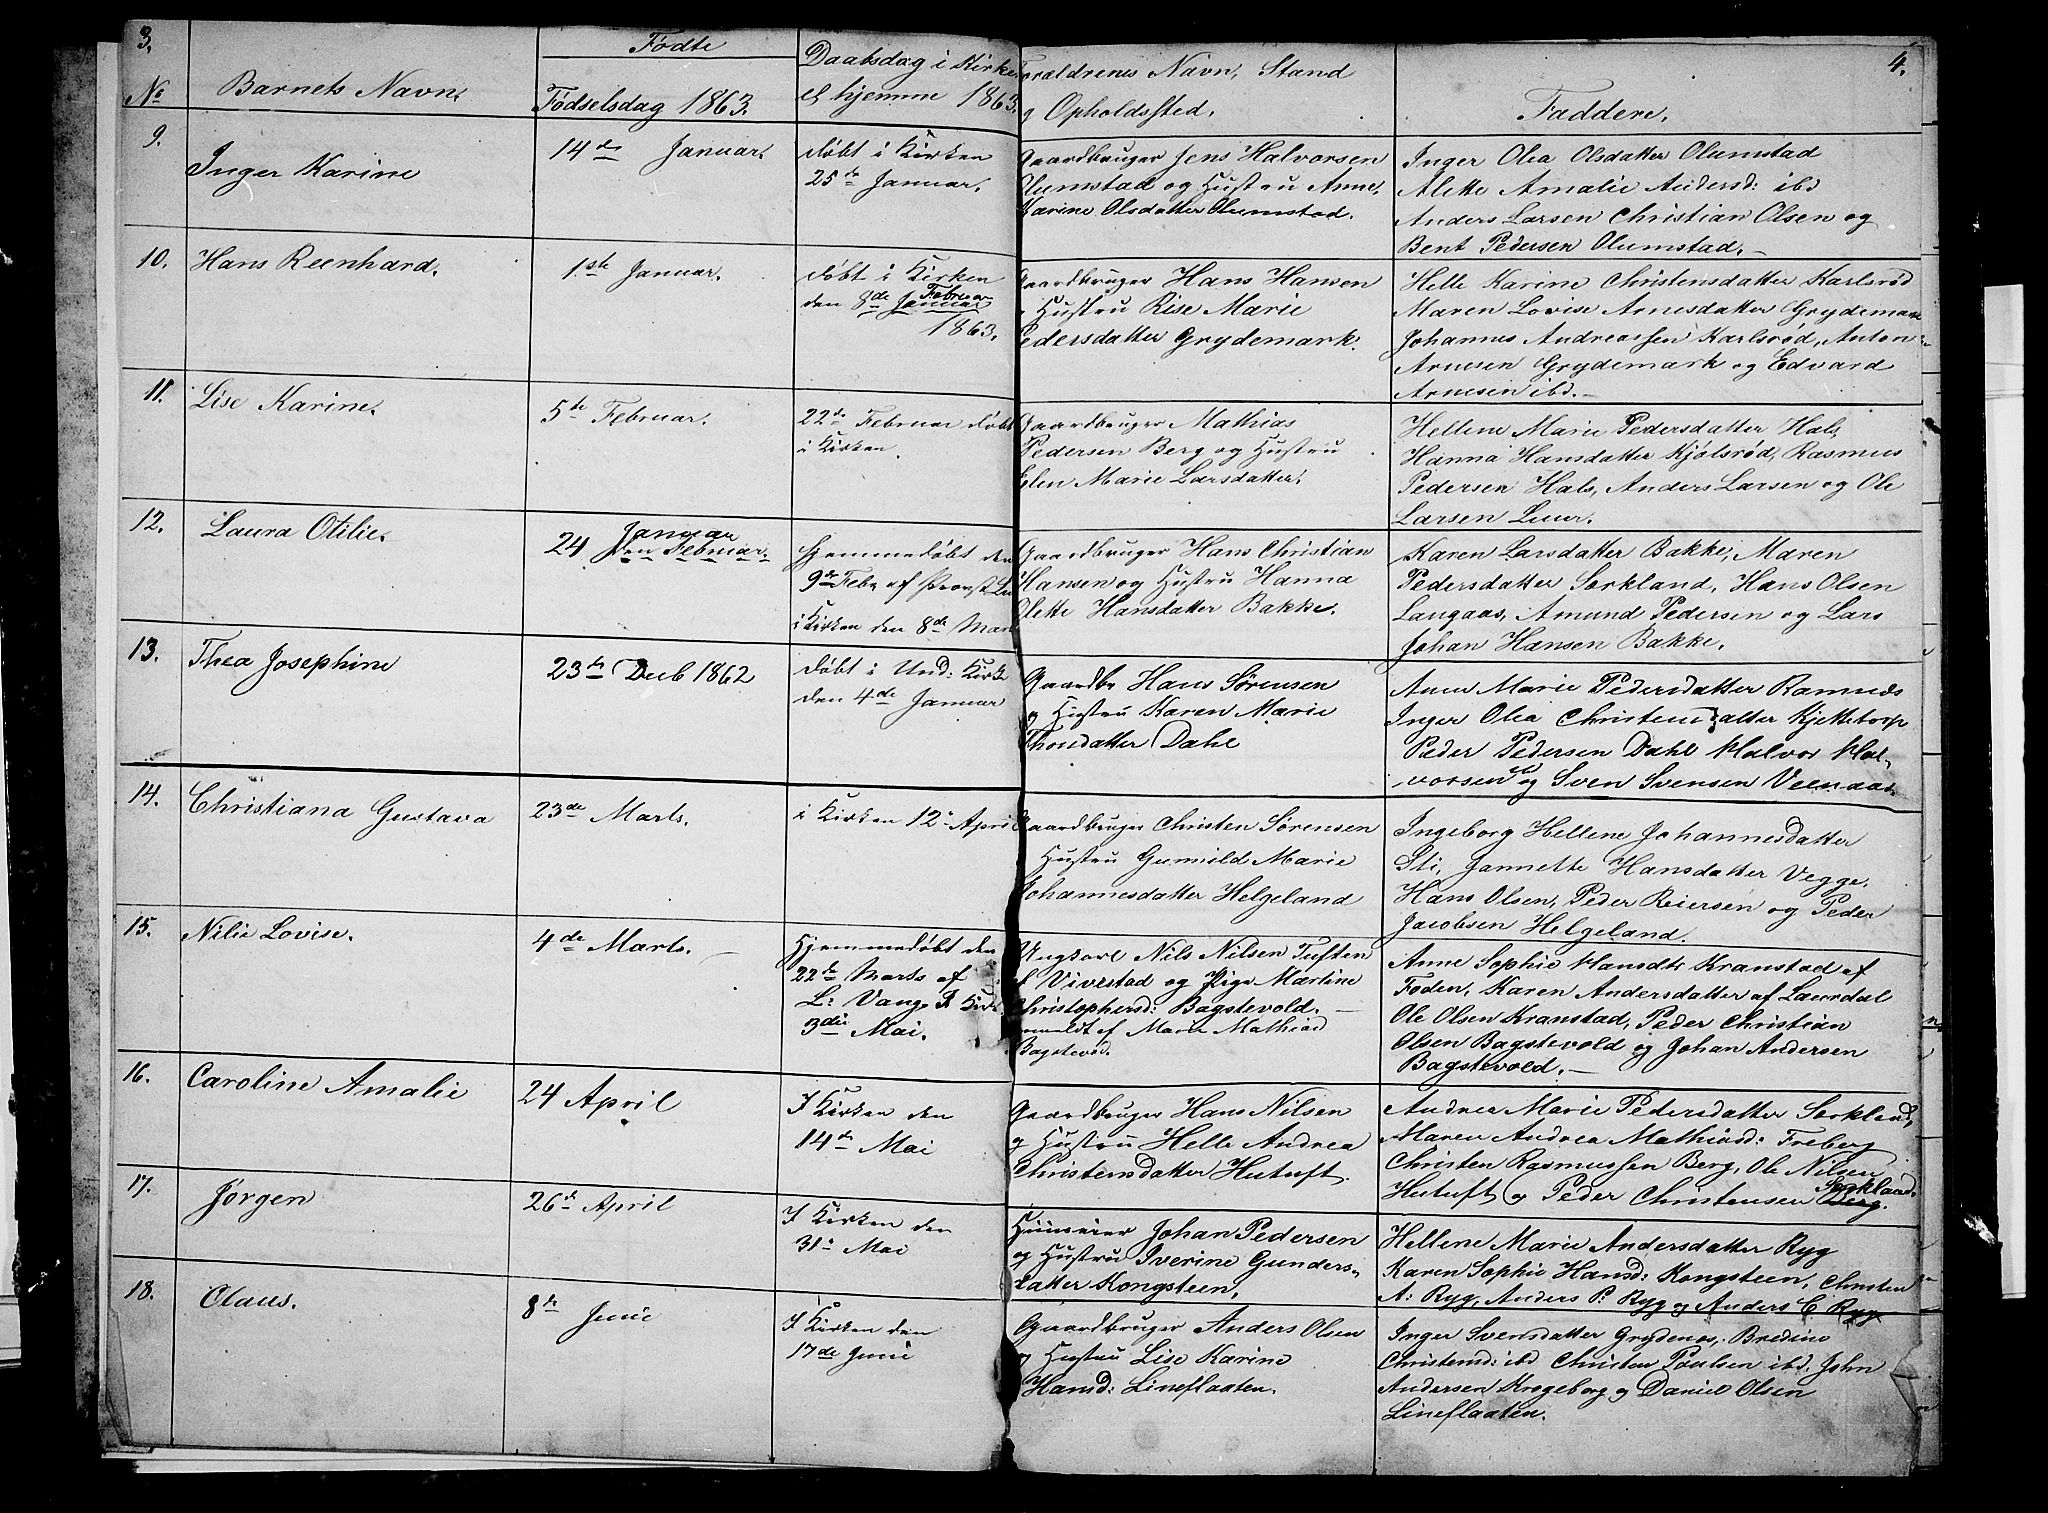 3.
4.
No
Barnets Navn.
Fødte
Fødselsdag 1863.
Daabsdag i Kirke
el hjemme 1863.
Forældrenes Navn, Stand
og Opholdssted.
Faddere.
9.
Inger Karine
14de Januar.
døbt i Kirken
25de Januar.
Gaardbruger Jens Halvorsen
Olumstad og Hustru Anne
Karine Olsdatter Olumstad.
Inger Olea Olsdatter Olumstad
Alette Amalie Andersd: ibd
Anders Larsen Christian Olsen og
Bent Pedersen Olumstad.
10.
Hans Reenhard.
1ste Januar.
døbt i Kirken
den 8de Januar Februar
1863.
Gaardbruger Hans Hansen
Hustru Rise Marie
Pedersdatter Grydemark.
Helle Karine Christensdatter Karlsrød
Maren Lovise Arnesdatter Grydemark
Johannes Andreassen Karlsrød, Anton
Arnesen Grydemark og Edvard
Arnesen ibd.
11.
Lise Karine.
5te Februar.
22de Februar døbt
i Kirken.
Gaardbruger Mathias
Pedersen Berg og Hustru
Elen Marie Larsdatter.
Hellene Marie Pedersdatter Hals
Hanna Hansdatter Kjølsrød, Rasmus
Pedersen Hals, Anders Larsen og Ole
Larsen Luur.
12.
Laura Otilie.
24 Januar
den Februar.
Hjemmedøbt den
9de Febr af Provst Lu
i Kirken den 8de Mart
Gaardbruger Hans Christian
Hansen og Hustru Hanna
Olette Hansdatter Bakke.
Karen Larsdatter Bakke, Maren
Pedersdatter Sorkland, Hans Olsen
Langaas, Amund Pedersen og Lars
Johan Hansen Bakke.
13.
Thea Josephine
23de Decb 1862
døbt i Und: Kirke
den 4de Januar
Gaardbr Hans Sørensen
og Hustru Karen Marie
Thordatter Dahl
Anne Marie Pedersdatter Ramnæs
Inger Olea Christensdatter Kjettetorp
Peder Pedersen Dahl Halvor Hal-
vorsen og Sven Svensen
14.
Christiana Gustava
23de Marts.
i Kirken 12te April
Gaardbruger Christen Sørensen
Hustru Gunnild Marie
Johannesdatter Helgeland
Ingeborg Hellene Johannesdatter
Sti, Jannette Hansdatter Vegge.
Hans Olsen, Peder Reiersen og Peder
Jacobsen Helgeland.
15.
Nilie Lovise.
4de Marts.
Hjemmedøbt den
22de Marts af
L: Vang, I Kirk
3die Mai.
Ungkarl Nils Nilsen Tuften
af Vivestad og Pige Martine
Christophersd: Bagstevold.
anmeldt af Maren Mathiasd
Bagstevold.
Anne Sophie Hansdtr Kranstad af
Foden, Karen Andersdatter af Laurdal
Ole Olsen Kranstad, Peder Christian
Olsen Bagstevold og Johan Andersen
Bagstevold.
16.
Caroline Amalie
24 April
I Kirken den
14de Mai
Gaardbruger Hans Nilsen
og Hustru Helle Andrea
Christensdatter Hutuft.
Andrea Marie Pedersdatter Sorkland,
Maren Andrea Mathiasd: Freberg
Christen Rasmussen Berg, Ole Nilsen
Hutuft og Peder Christensen Berg. Sorkland.
17.
Jørgen
26de April
I Kirken den
31te Mai
Huusejer Johan Pedersen
og Hustru Iverine Gunders-
datter Kongsteen.
Hellene Marie Andersdatter Ryg
Karen Sophie Hansd: Kongsteen, Christen
A: Ryg, Anders P: Ryg og Anders C Ryg
18.
Claus.
8de Junie
I Kirken den
17de Junie
Gaardbruger Anders Olsen
og Hustru Lise Karine
Hansd: Lineflaaten.
Inger Svensdatter Grydenos, Bredine
Christensd: ibd Christen Poulsen ibd. John
Andersen Krogeborg og Daniel Olsen
Lineflaaten.